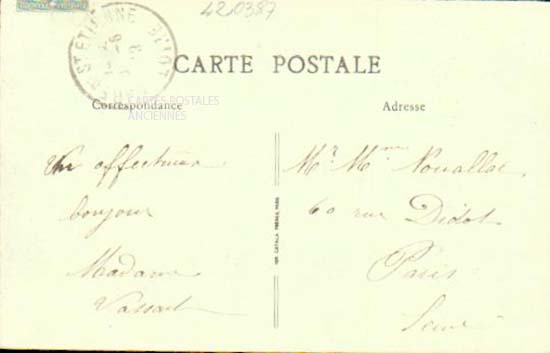 420387
ST ETIENNE
CARTE POSTALE
Correspondance
Adresse
CARTES POSTALES
ANCIENNES
Un affectueux
bonjour
Madame
Vassart
Mr Mme Nouallet
60 rue Didot
Paris
Seine